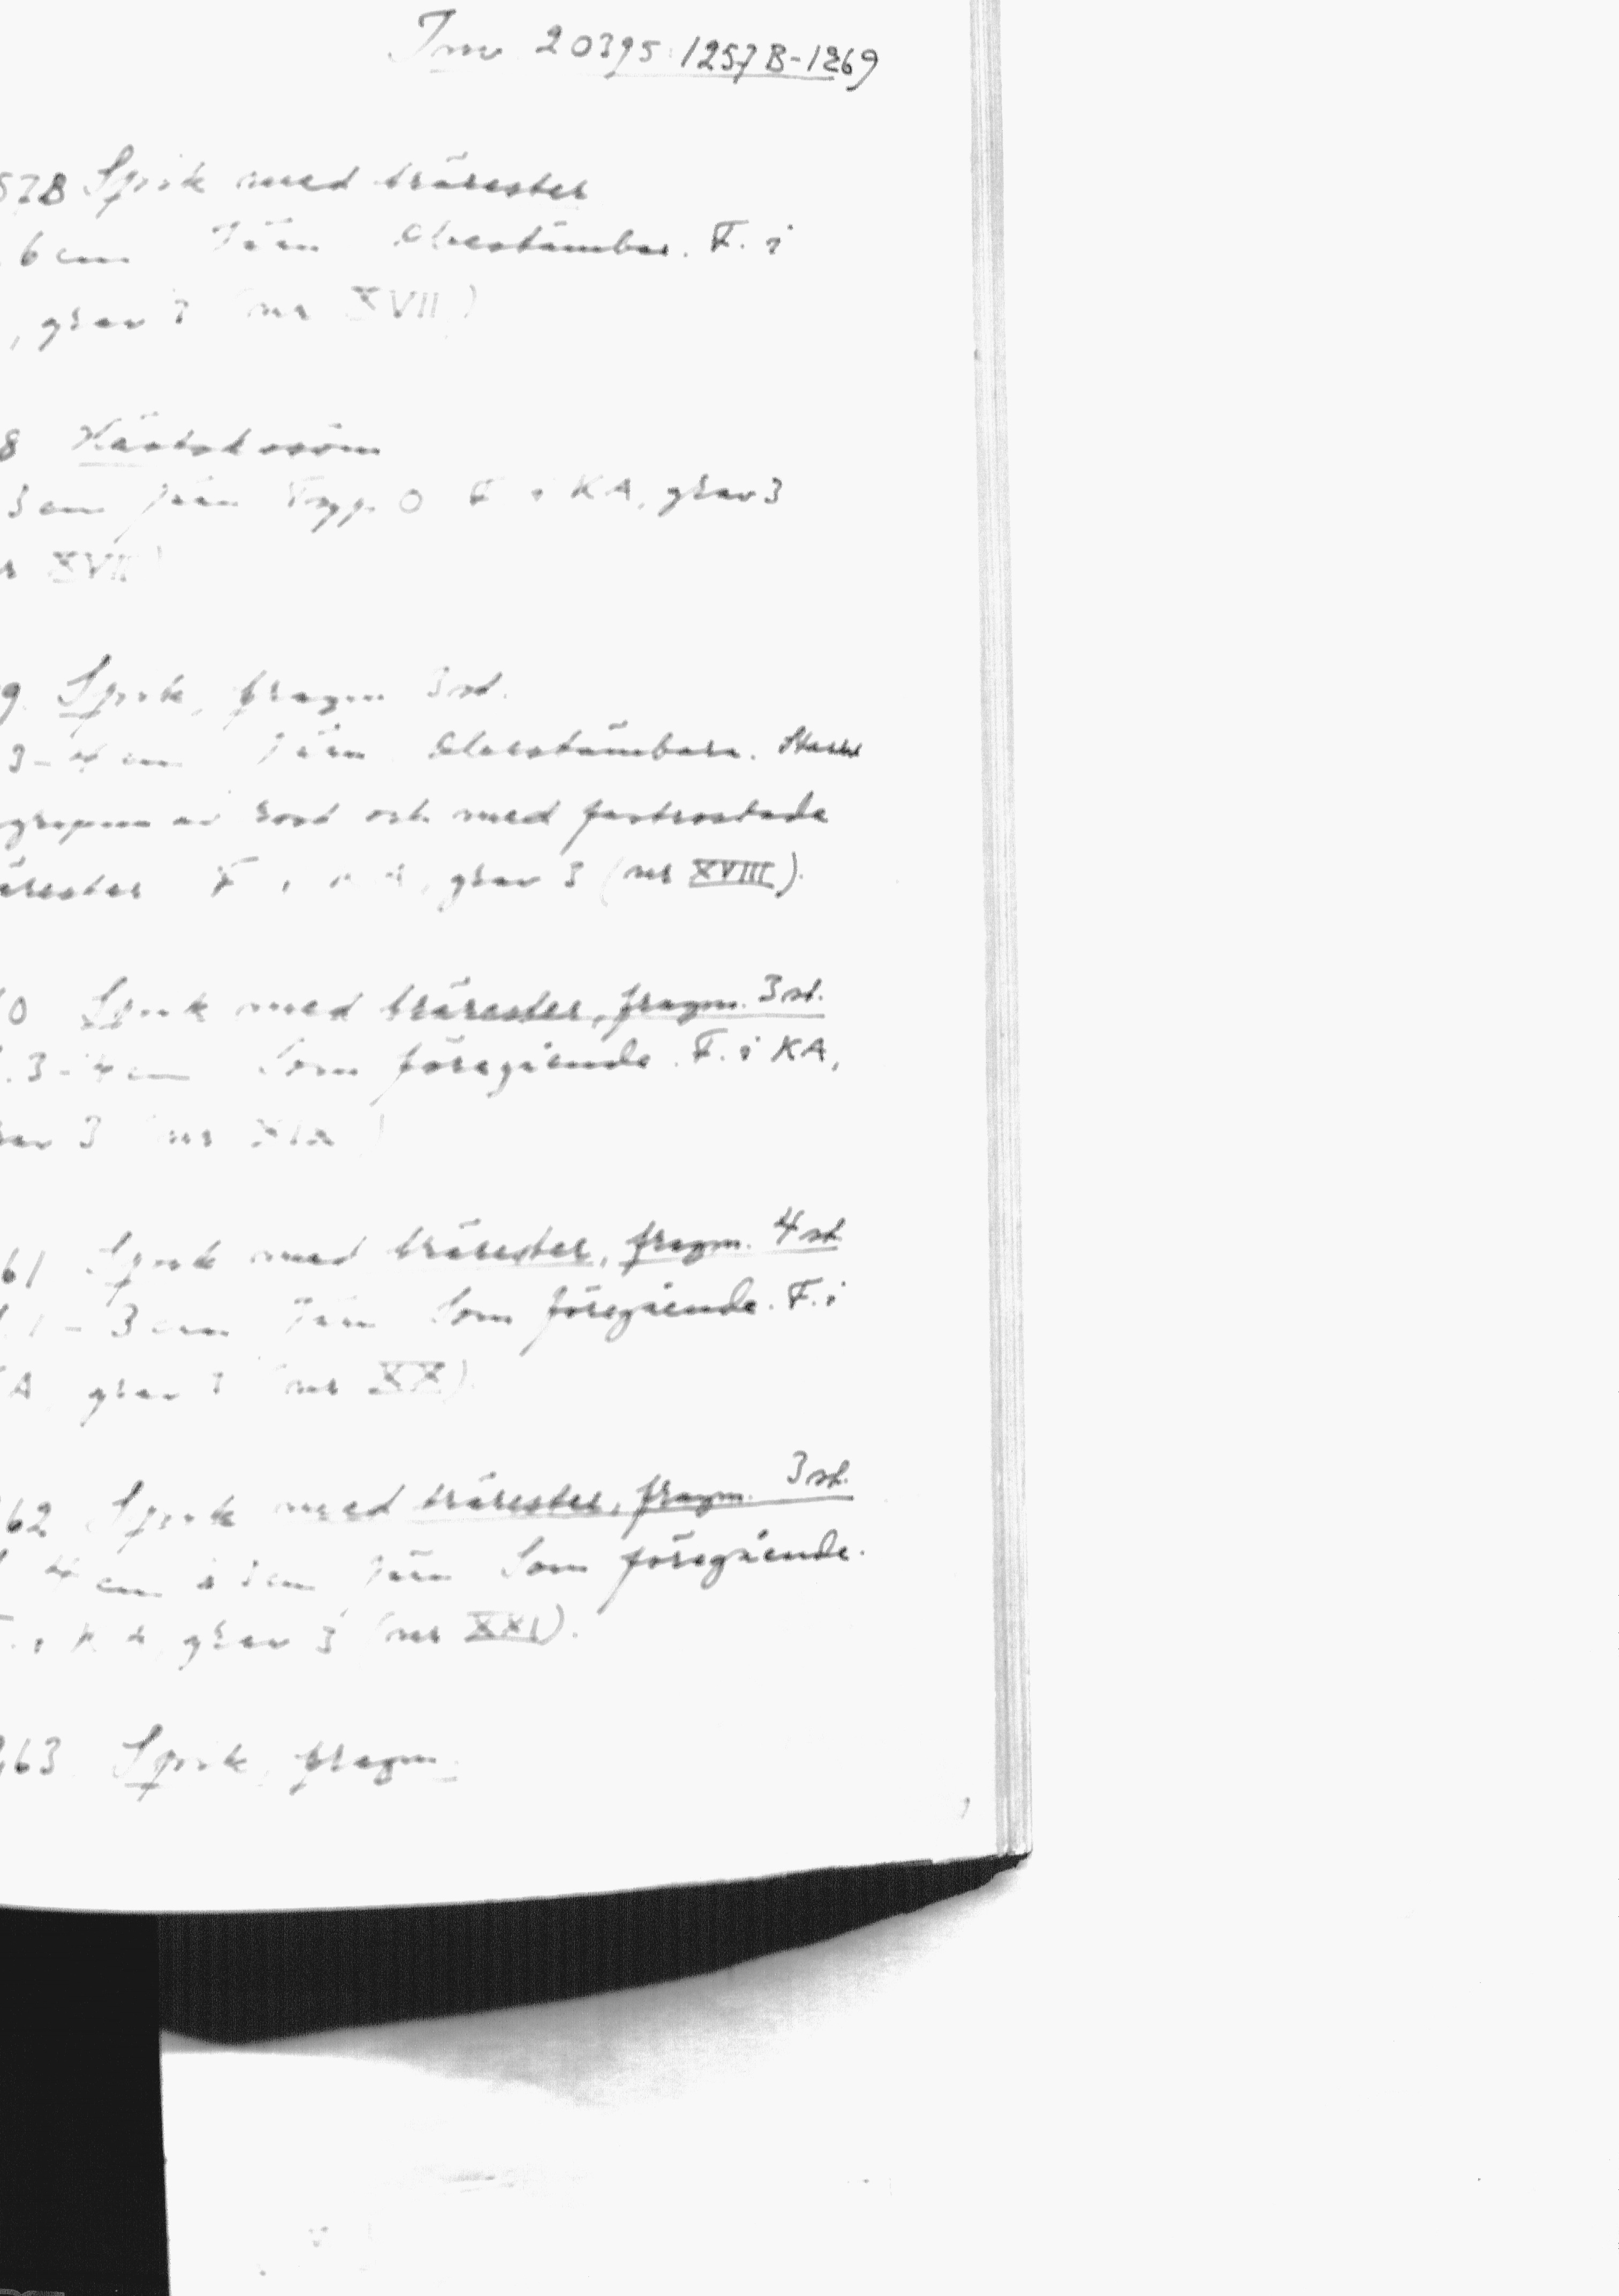 Inv 20395:1257B-1269
57B Spik med trärester
6 cm Järn Obestämbar. F. i
, grav 3 (nr XVII)
8 Hästskosöm
3 cm Järn Typ O F i KA, grav 3
r XVII)
9. Spik, fragm 3 st.
3-4 cm Järn Obestämbara. Starkt
grepna av rost och med fastrostade
ärester F i KA, grav 3 (nr XVIII).
0 Spik med trärester, fragm. 3 st.
.3-4 cm Som föregående. F. i KA,
av 3 (nr XIX)
61 Spik med trärester, fragm. 4 st
1-3 cm Järn Som föregående. F. i
A grav 3 (nr XX)
62 Spik med trärester, fragm. 3 st.
4 cm Järn Som föregående.
F. i KA, grav 3 (nr XXI).
263 Spik, fragm.